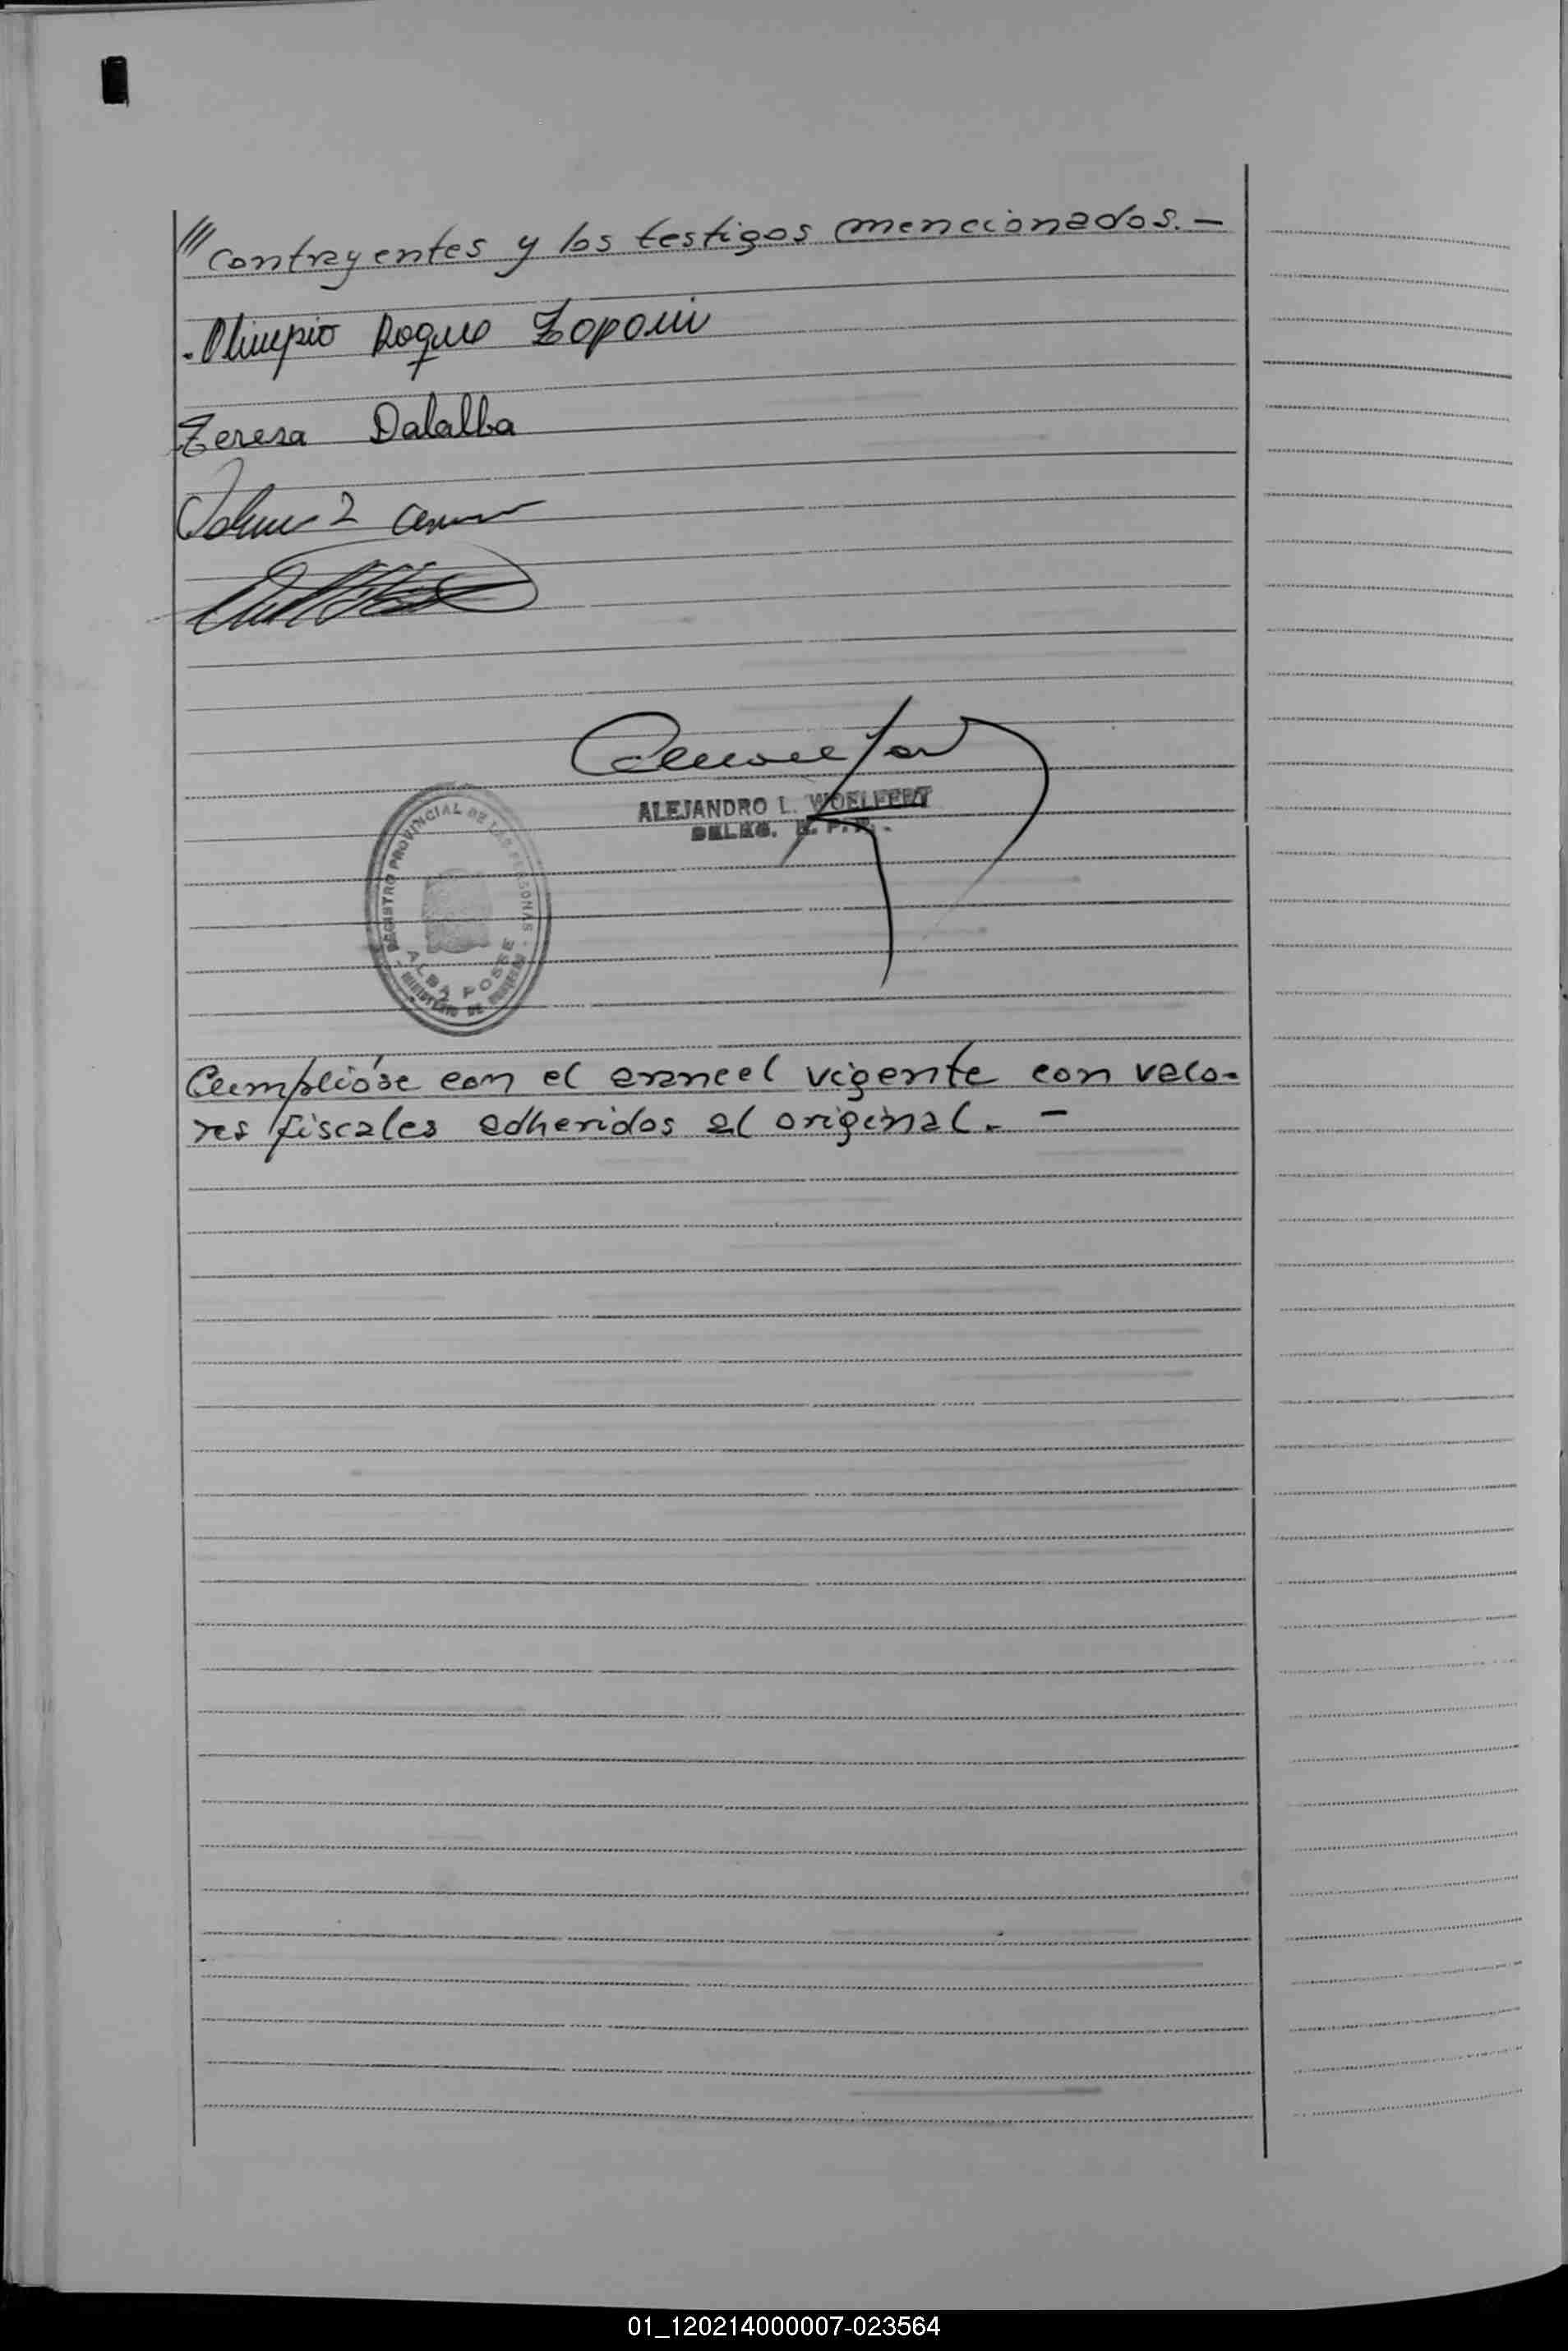 /// Contrayentes y los testigos mencionados. —
. Olimpio Roque Zoponi
Teresa Dalalba
ALEJANDRO L. WOELFERT
DELEG. R. P. P.
REGISTRO PROVINCIAL DE LAS PERSONAS -
ALBA POSSE
MINISTERIO DE
Cumplióse con el arancel vigente con valo-
res fiscales adheridos al original. —
01_120214000007-023564